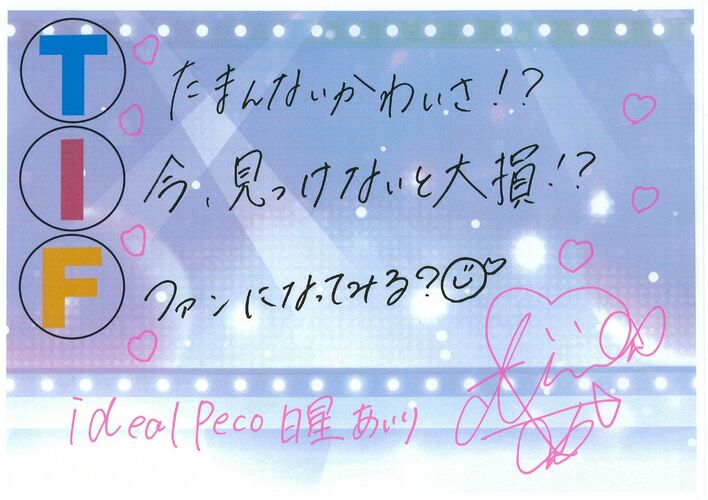 T たまんないかわいさ!?
I 今、見つけないと大損!?
F ファンになってみる?
ideal peco 日星 あいり